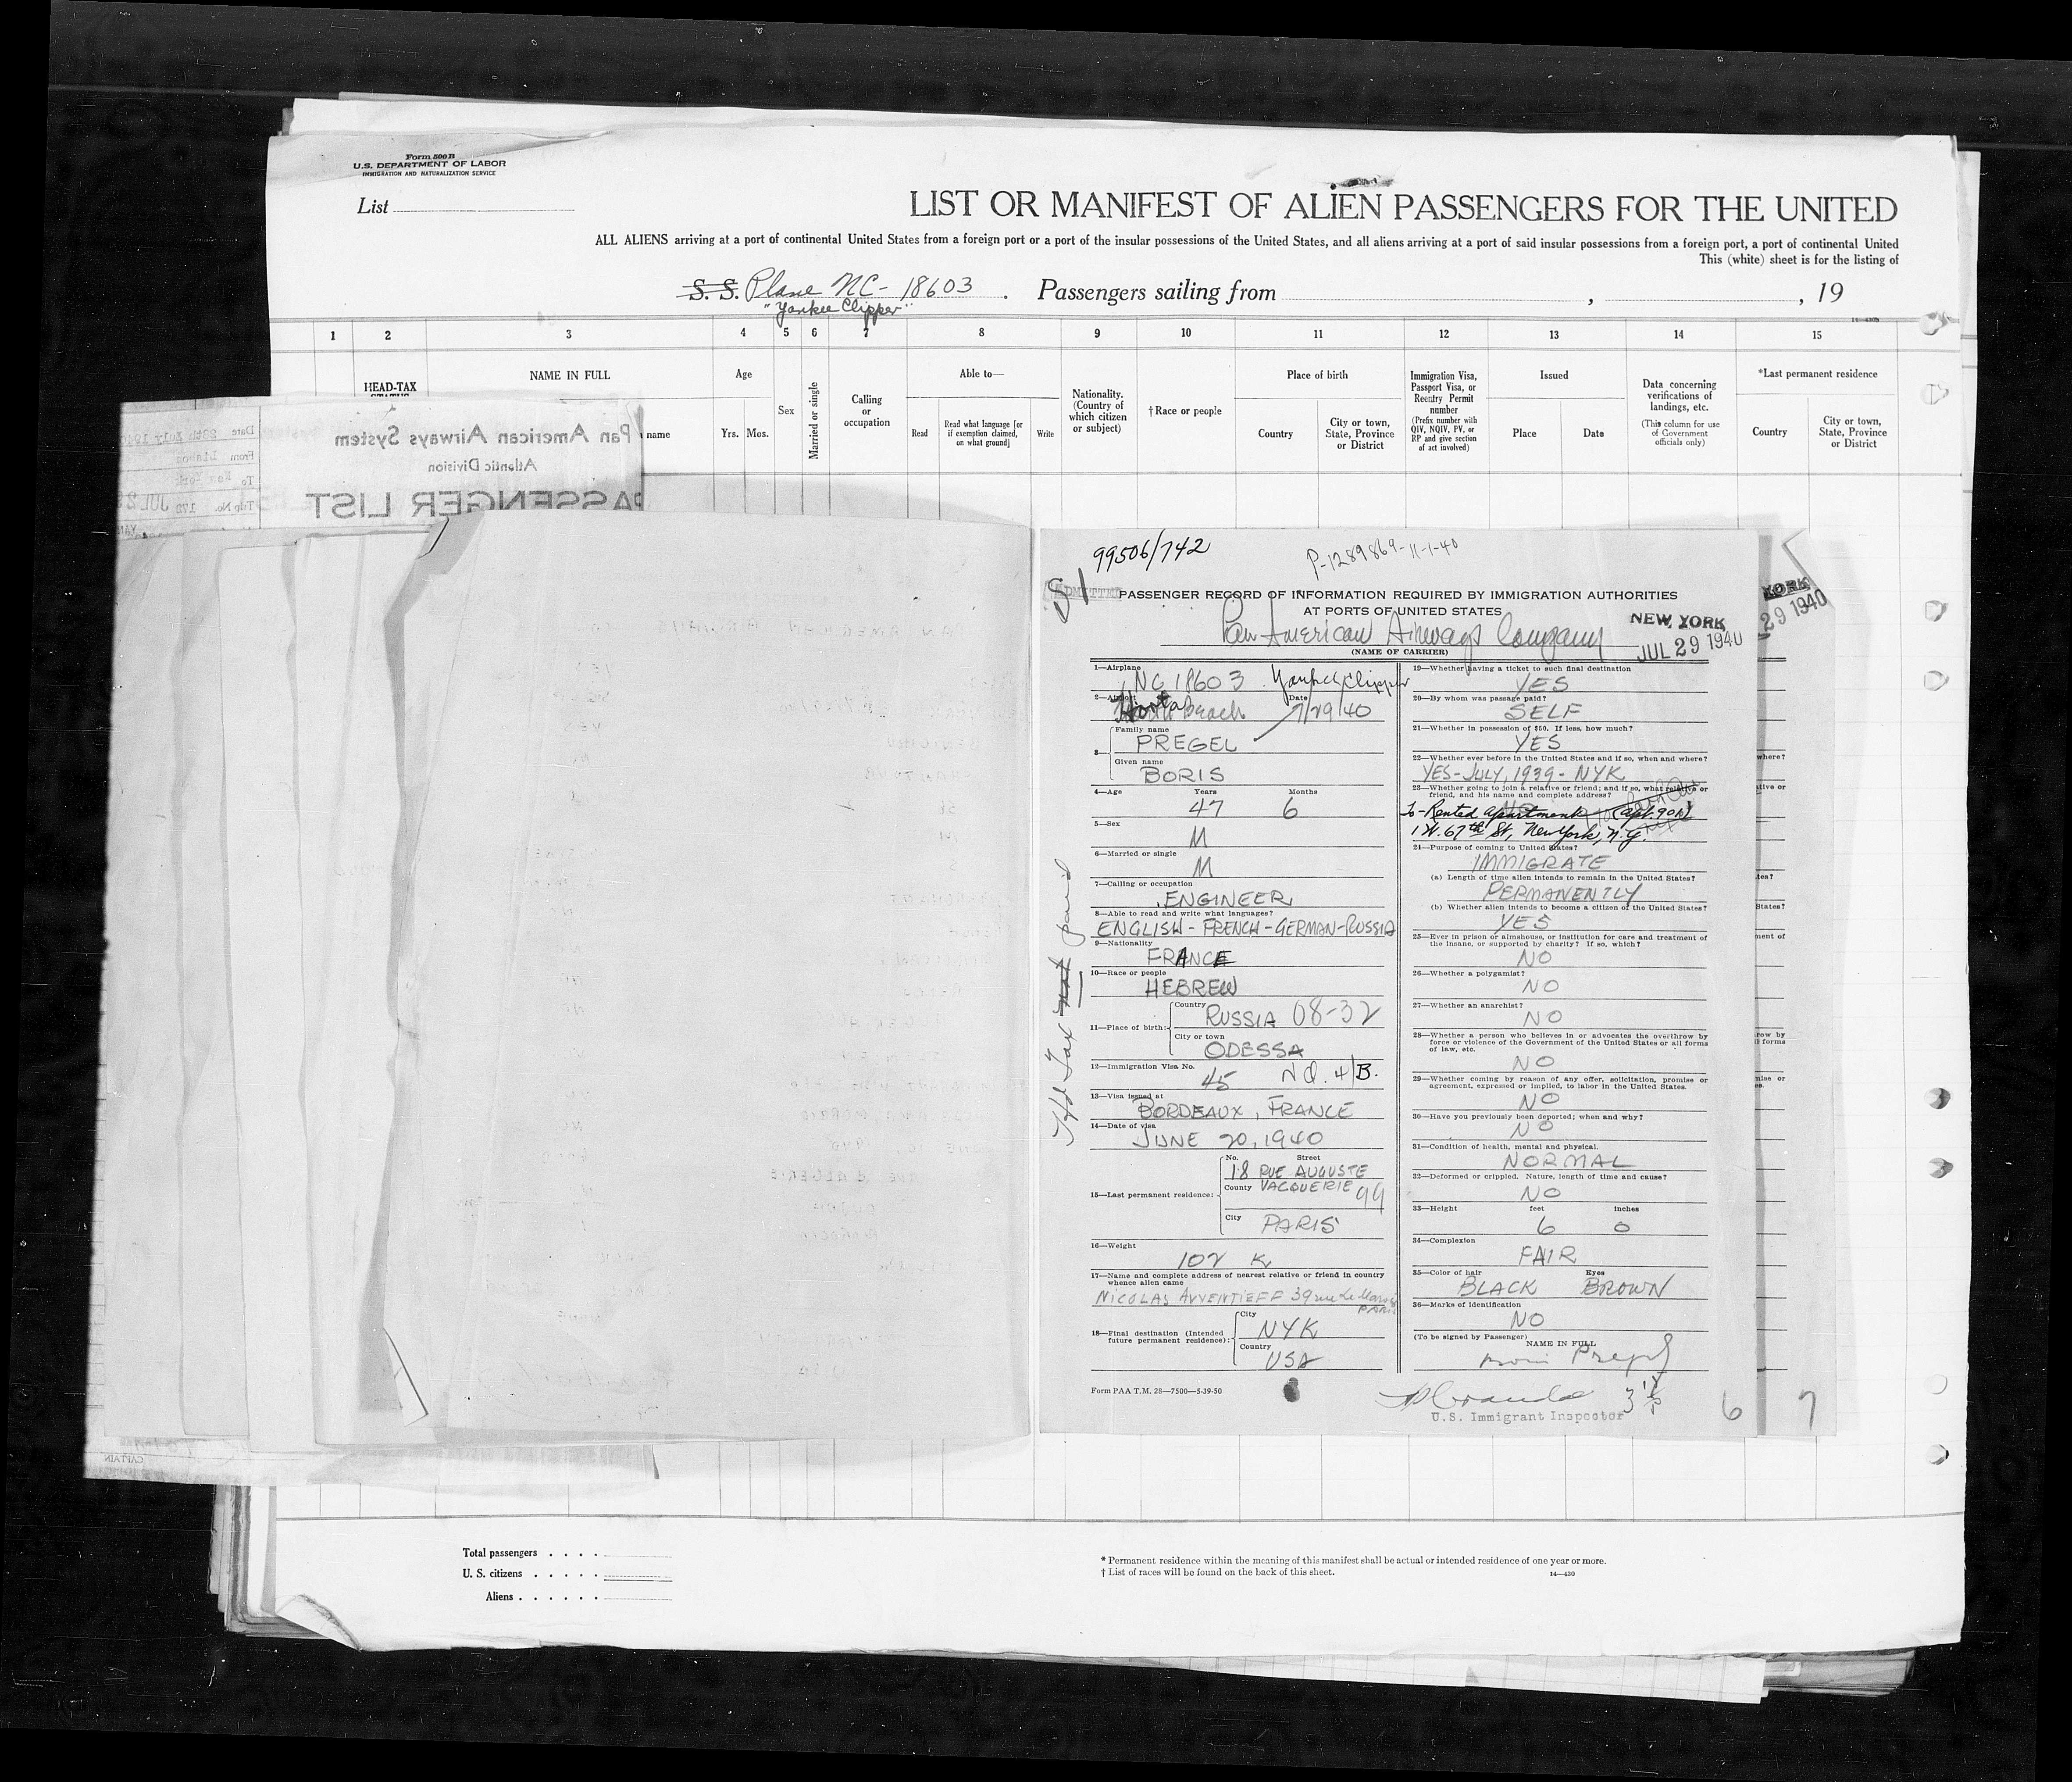 Form 500 B
U.S. DEPARTMENT OF LABOR
IMMIGRATION AND NATURALIZATION SERVICE
List
LIST OR MANIFEST OF ALIEN PASSENGERS FOR THE UNITED
ALL ALIENS arriving at a port of continental United States from a foreign port or a port of the insular possessions of the United States, and all aliens arriving at a port of said insular possessions from a foreign port, a port of continental United
This (white) sheet is for the listing of
S. S. Plane NC-18603 . Passengers sailing from , , 19
"Yankee Clipper"
1 2 3 4 5 6 7 8 9 10 11 12 13 14 15
HEAD-TAX
STATUS
NAME IN FULL
name
Age
Yrs. Mos.
Sex
Married or single
Calling
or
occupation
Able to—
Read
Read what language [or
if exemption claimed,
on what ground]
Write
Nationality.
(Country of
which citizen
or subject)
†Race or people
Place of birth
Country
City or town,
State, Province
or District
Immigration Visa,
Passport Visa, or
Reentry Permit
number
(Prefix number with
QIV, NQIV, PV, or
RP and give section
of act involved)
Issued
Place
Date
Data concerning
verifications of
landings, etc.
(This column for use
of Government
officials only)
*Last permanent residence
Country
City or town,
State, Province
or District
Pan American Airways System
Atlantic Division
PASSENGER LIST
Date 28th July
From Lisbon
To New York
Trip No. 172 JUL
CAPTAIN
99506/742
P-1289869-11-1-40
S1
ADMITTED
PASSENGER RECORD OF INFORMATION REQUIRED BY IMMIGRATION AUTHORITIES
AT PORTS OF UNITED STATES
Pan American Airways Company
(NAME OF CARRIER)
NEW YORK
JUL 29 1940
YORK
29 1940
1—Airplane
NC 18603 Yankee Clipper
2—Airport Date
Horta Beach 7/29/40
3— Family name
PREGEL
Given name
BORIS
4—Age Years Months
47 6
5—Sex
M
6—Married or single
M
7—Calling or occupation
ENGINEER
8—Able to read and write what languages?
ENGLISH - FRENCH - GERMAN - RUSSIA
9—Nationality
FRANCE
10—Race or people
HEBREW
11—Place of birth: Country
RUSSIA 08-32
City or town
ODESSA
12—Immigration Visa No.
45 N.Q. 4/B.
13—Visa issued at
BORDEAUX, FRANCE
14—Date of visa
JUNE 20, 1940
15—Last permanent residence: No. Street
18 RUE AUGUSTE
County VACQUERIE 99
City PARIS
16—Weight
102 K
17—Name and complete address of nearest relative or friend in country
whence alien came
NICOLAS AVVENTIEFF 39 rue Le
PARIS
18—Final destination (Intended
future permanent residence): City
NYK
Country
USA
Form PAA T.M. 28—7500—5-39-50
Hd Tax not paid
19—Whether having a ticket to such final destination
YES
20—By whom was passage paid?
SELF
21—Whether in possession of $50. If less, how much?
YES
22—Whether ever before in the United States and if so, when and where?
YES - JULY, 1939 - NYK
23—Whether going to join a relative or friend; and if so, what relative or
friend, and his name and complete address?
NO
To - Rented apartment (Apt. 901)
1 W. 67th St, New York, N.Y.
24—Purpose of coming to United States?
IMMIGRATE
(a) Length of time alien intends to remain in the United States?
PERMANENTLY
(b) Whether alien intends to become a citizen of the United States?
YES
25—Ever in prison or almshouse, or institution for care and treatment of
the insane, or supported by charity? If so, which?
NO
26—Whether a polygamist?
NO
27—Whether an anarchist?
NO
28—Whether a person who believes in or advocates the overthrow by
force or violence of the Government of the United States or all forms
of law, etc.
NO
29—Whether coming by reason of any offer, solicitation, promise or
agreement, expressed or implied, to labor in the United States.
NO
30—Have you previously been deported; when and why?
NO
31—Condition of health, mental and physical.
NORMAL
32—Deformed or crippled. Nature, length of time and cause?
NO
33—Height feet inches
6 0
34—Complexion
FAIR
35—Color of hair Eyes
BLACK BROWN
36—Marks of identification
NO
(To be signed by Passenger)
NAME IN FULL
Boris Pregel
U.S. Immigrant Inspector
6
7
where?
ative or
tes?
States?
ment of
row by
ll forms
mise or
es.
Total passengers . . . .
U. S. citizens . . . . .
Aliens . . . . . .
* Permanent residence within the meaning of this manifest shall be actual or intended residence of one year or more.
† List of races will be found on the back of this sheet.
14—430